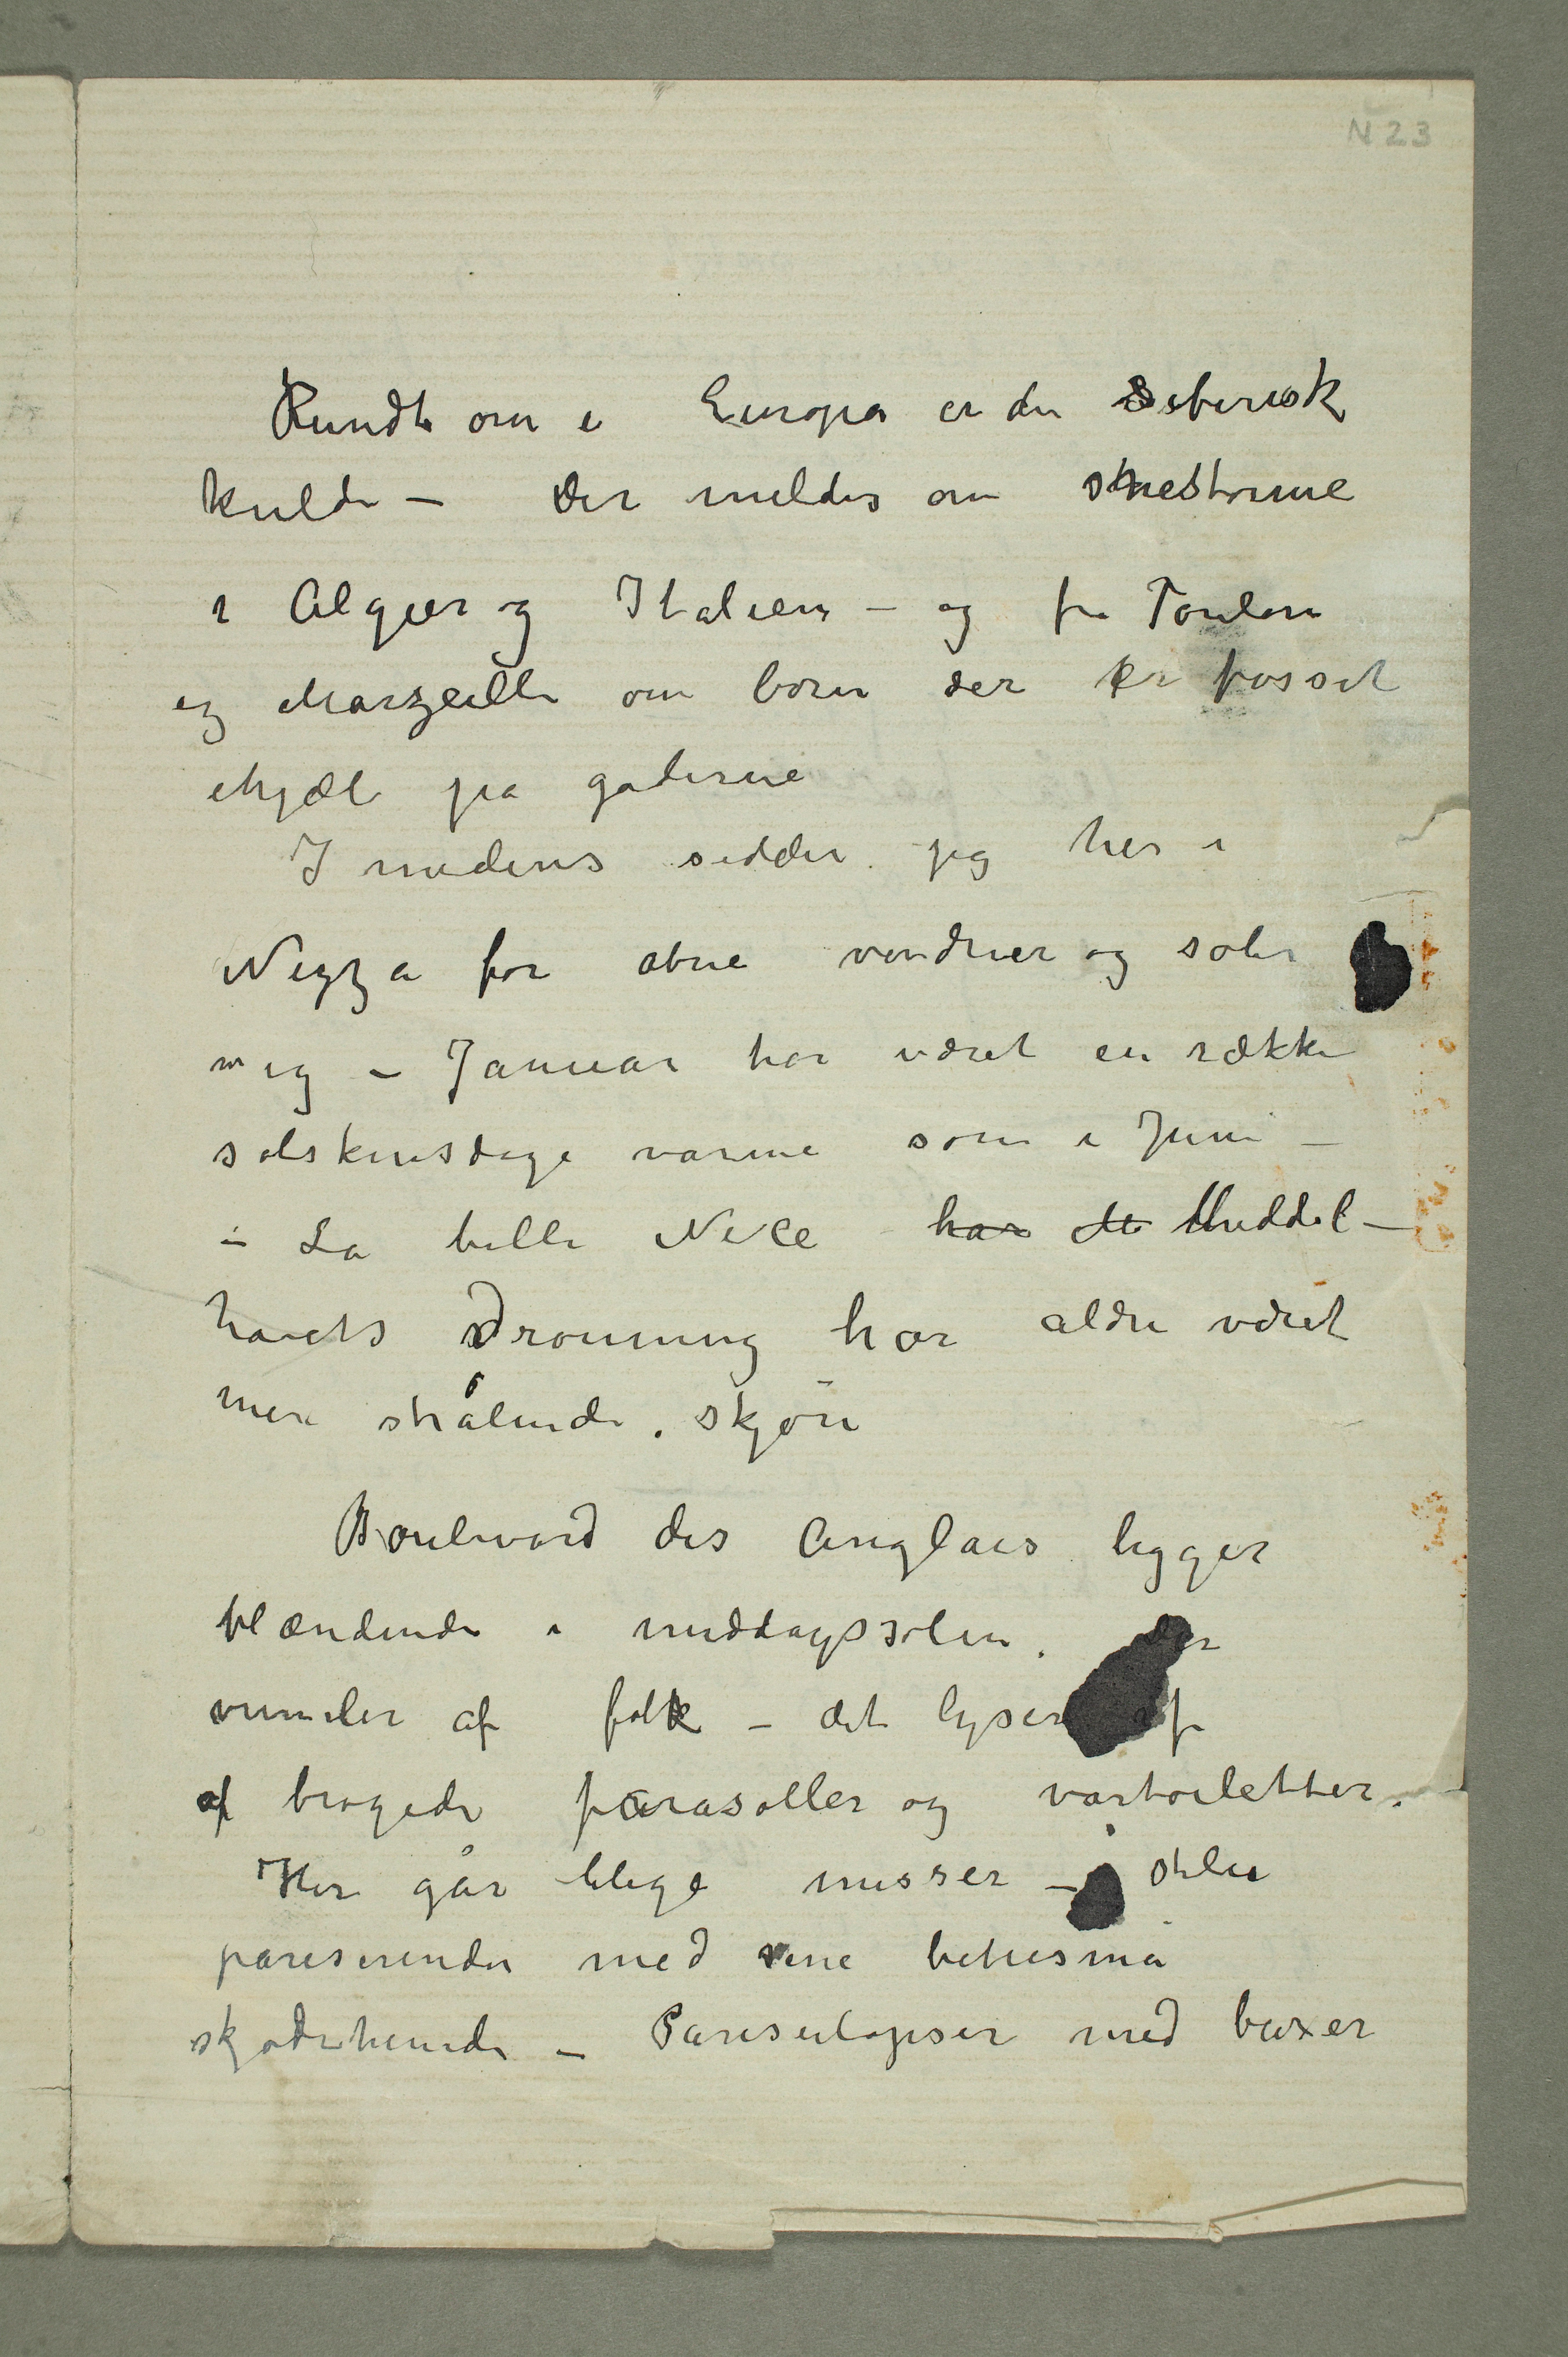 N 23
Rundt om i Europa er der Siberisk
kulde – Der meldes om snestorme
i Algier og Italien – og fra Toulon
og Marzeille om born der er frosset
ihjæl pa gaderne
I midens sidder jeg her i
Nizza for abne vinduer og soler
mig – Januar har været en række
solskinsdage varme som i Juni –
– La belle Nice har de Middel-
havets Dronning har aldri været
mere strålende. skjön
Boulevard des Anglais ligger
blændende i middagssolen. Der
vrimler af folk – det lyser af
af brogede parasoller og vårtoiletter.
Her går blege misser – i stilen
pariserinder med sine bitte små
skjødehunde – Pariserlapser med buxer